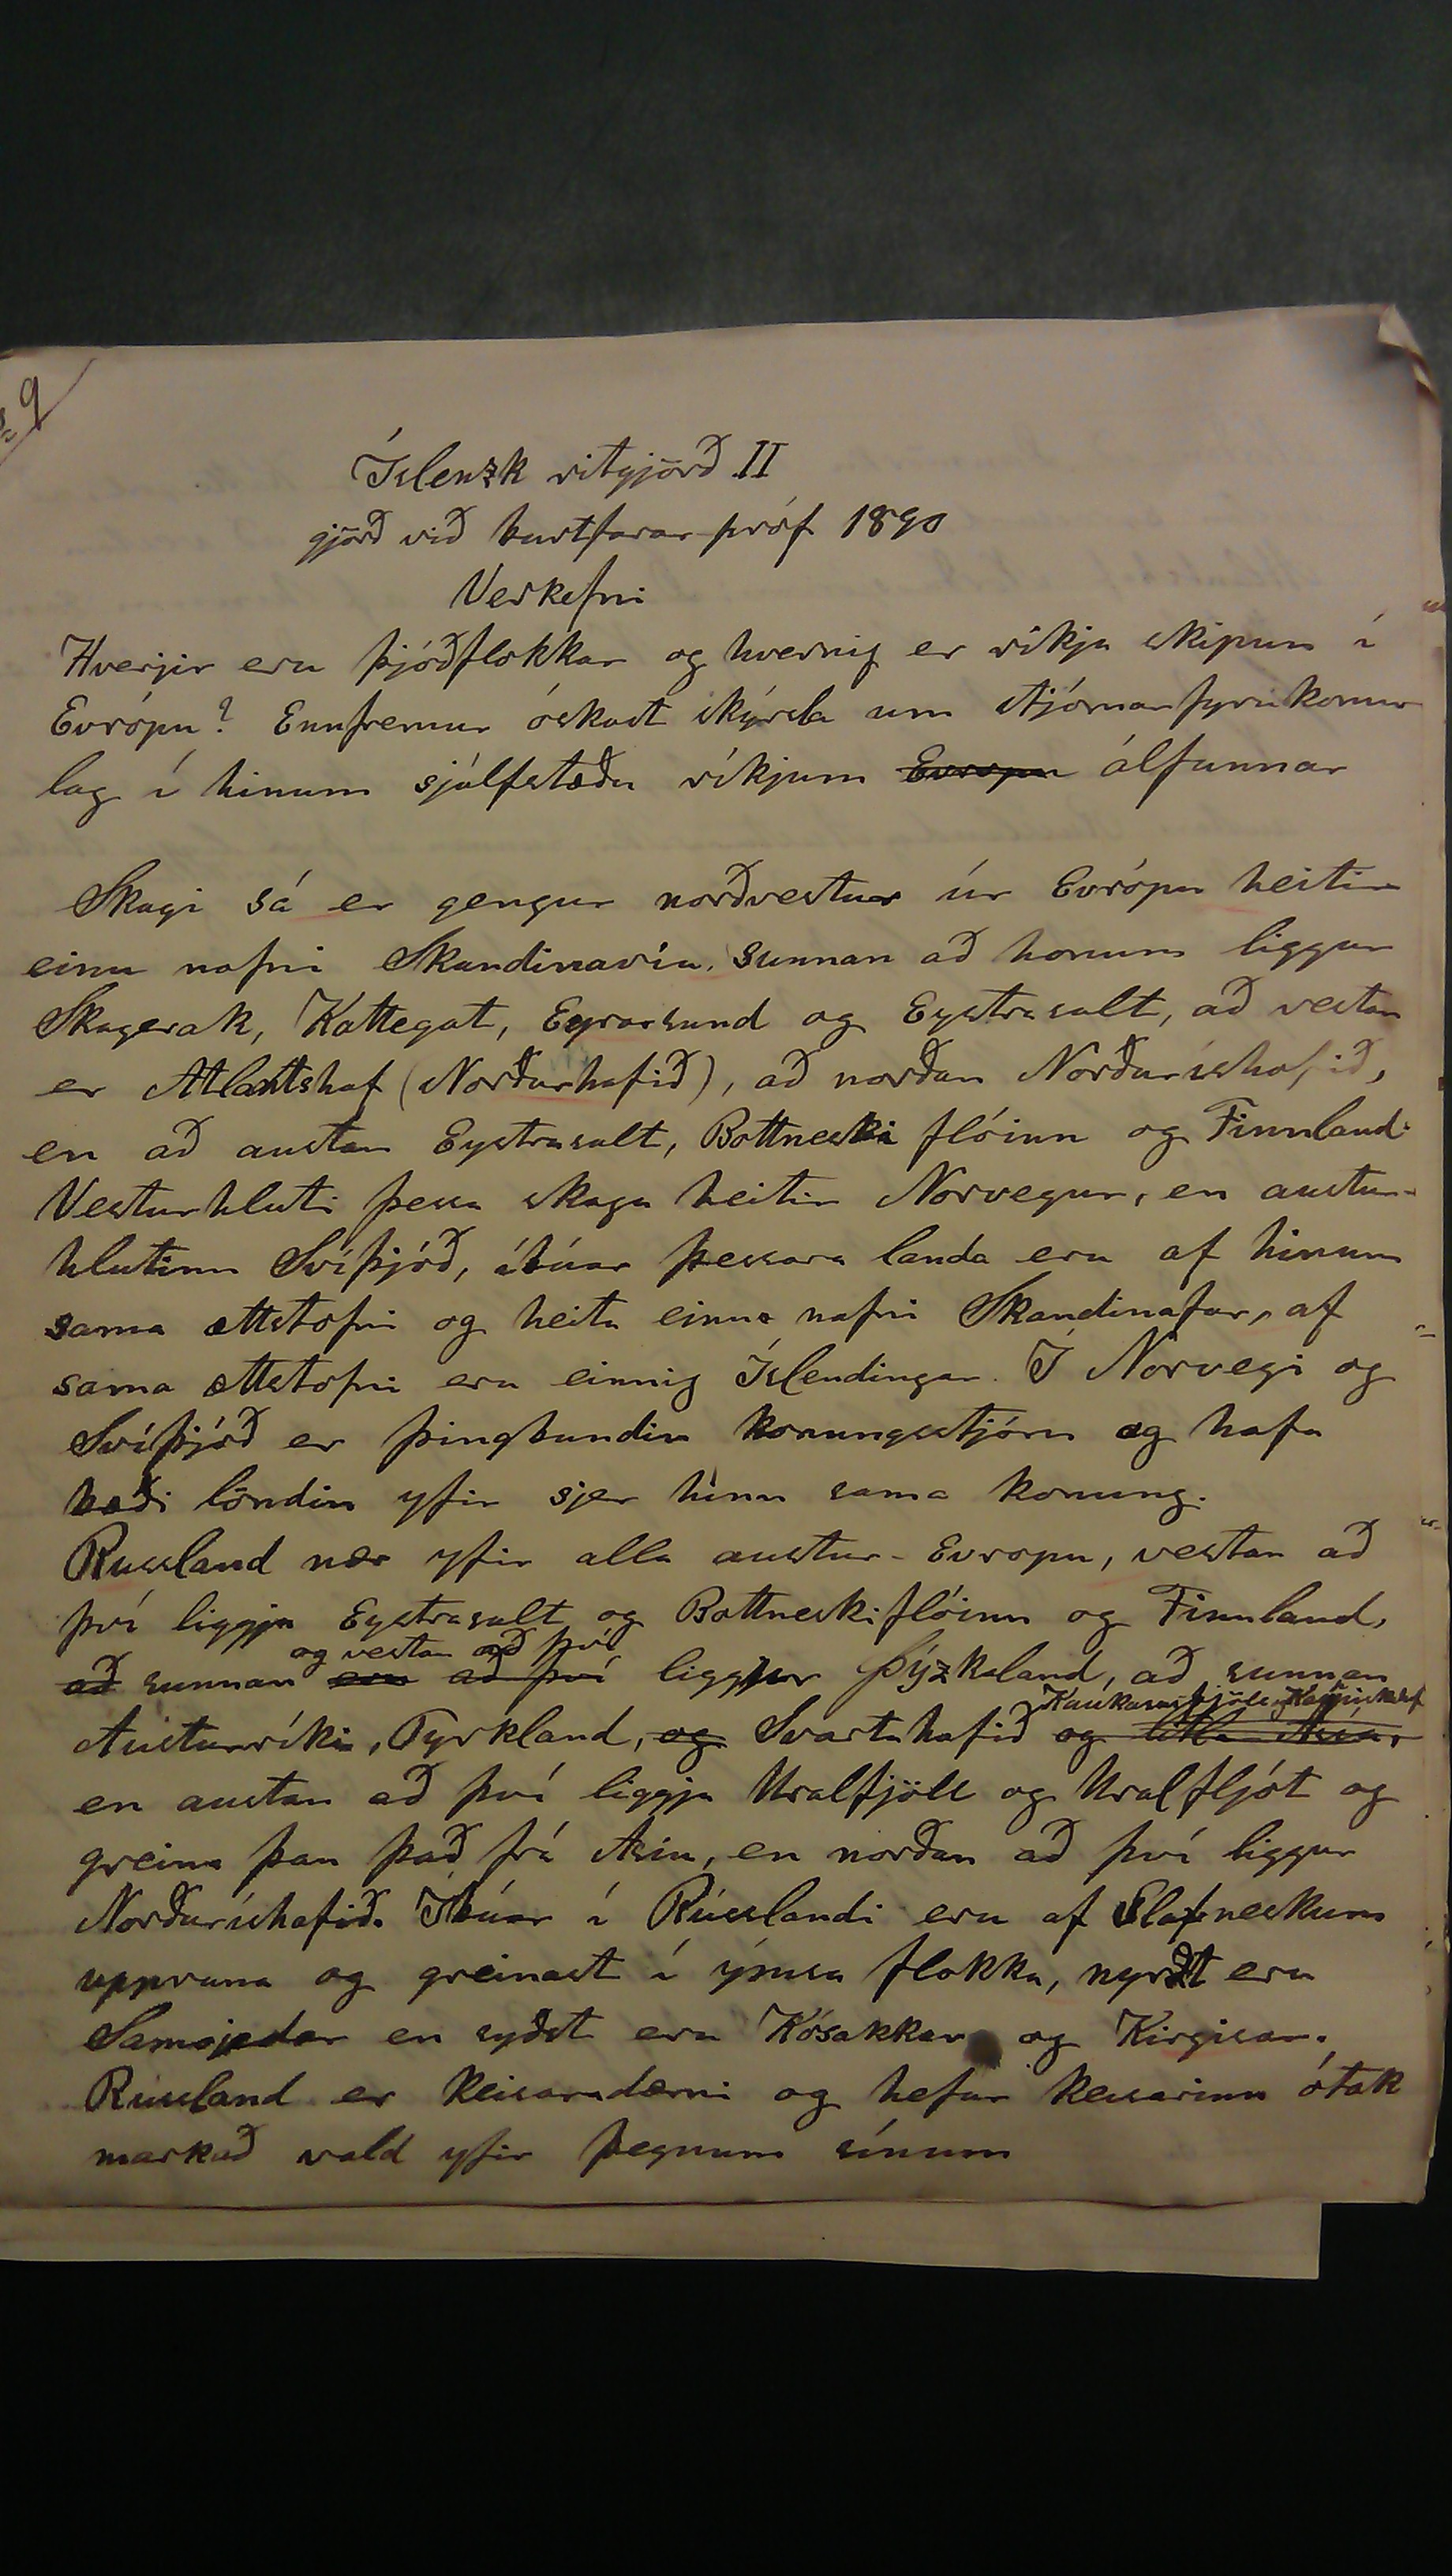 9
Íslenzk ritgjörð II
gjörð við burtfarar próf 1890
Verkefni
Hverjir eru þjóðflokkar og hvernig er ríkja skipun í
Evrópu? Ennfremur óskast skýrsla um stjórnarfyrirkomu
lag í hinum sjálfstæðu ríkjum Evropu álfunnar
Skagi sá er gengur norðvestur úr Evrópu heitir
einu nafni Skandinavía. Sunnan að honum liggur
Skagerak, Kattegat, Eyrarsund og Eystrasalt, að vestan
er Atlantshaf (Norðurhafið), að norðan Norðuríshafið,
en að austan Eystrasalt, Bottneski flóinn og Finnland.
Vesturhluti þessa skaga heitir Norvegur, en austur-
hlutinn Svíþjóð, íbúar þessara landa eru af hinum
sama ættstofni og heita einu nafni Skandinafar, af
sama ættstofni eru einnig Íslendingar. Í Norvegi og
Svíþjóð er þingbundin konungsstjórn og hafa
bæði löndin yfir sjer hinn sama konung.
Russland nær yfir alla austur-Evropu, vestan að
því liggja Eystrasalt og Bottneskiflóinn og Finnland,
og vestan að því
að sunnan en að því liggur Þýzkaland, að sunnan
Kaukasusfjöll og Kaspiskahaf
Austurríki, Tyrkland, og Svartahafið og litla Asía,
en austan að því liggja Uralfjöll og Uralfljót og
greina þau það frá Asíu, en norðan að því liggur
Norðuríshafið. Íbúar í Rússlandi eru af Slafneskum
uppruna og greinast í ýmsa flokka, nyrðst eru
Samojedar en syðst eru Kósakkar og Kirgisar.
Rússland er keisaradæmi og hefur keisarinn ótak
markað vald yfir þegnum sínum